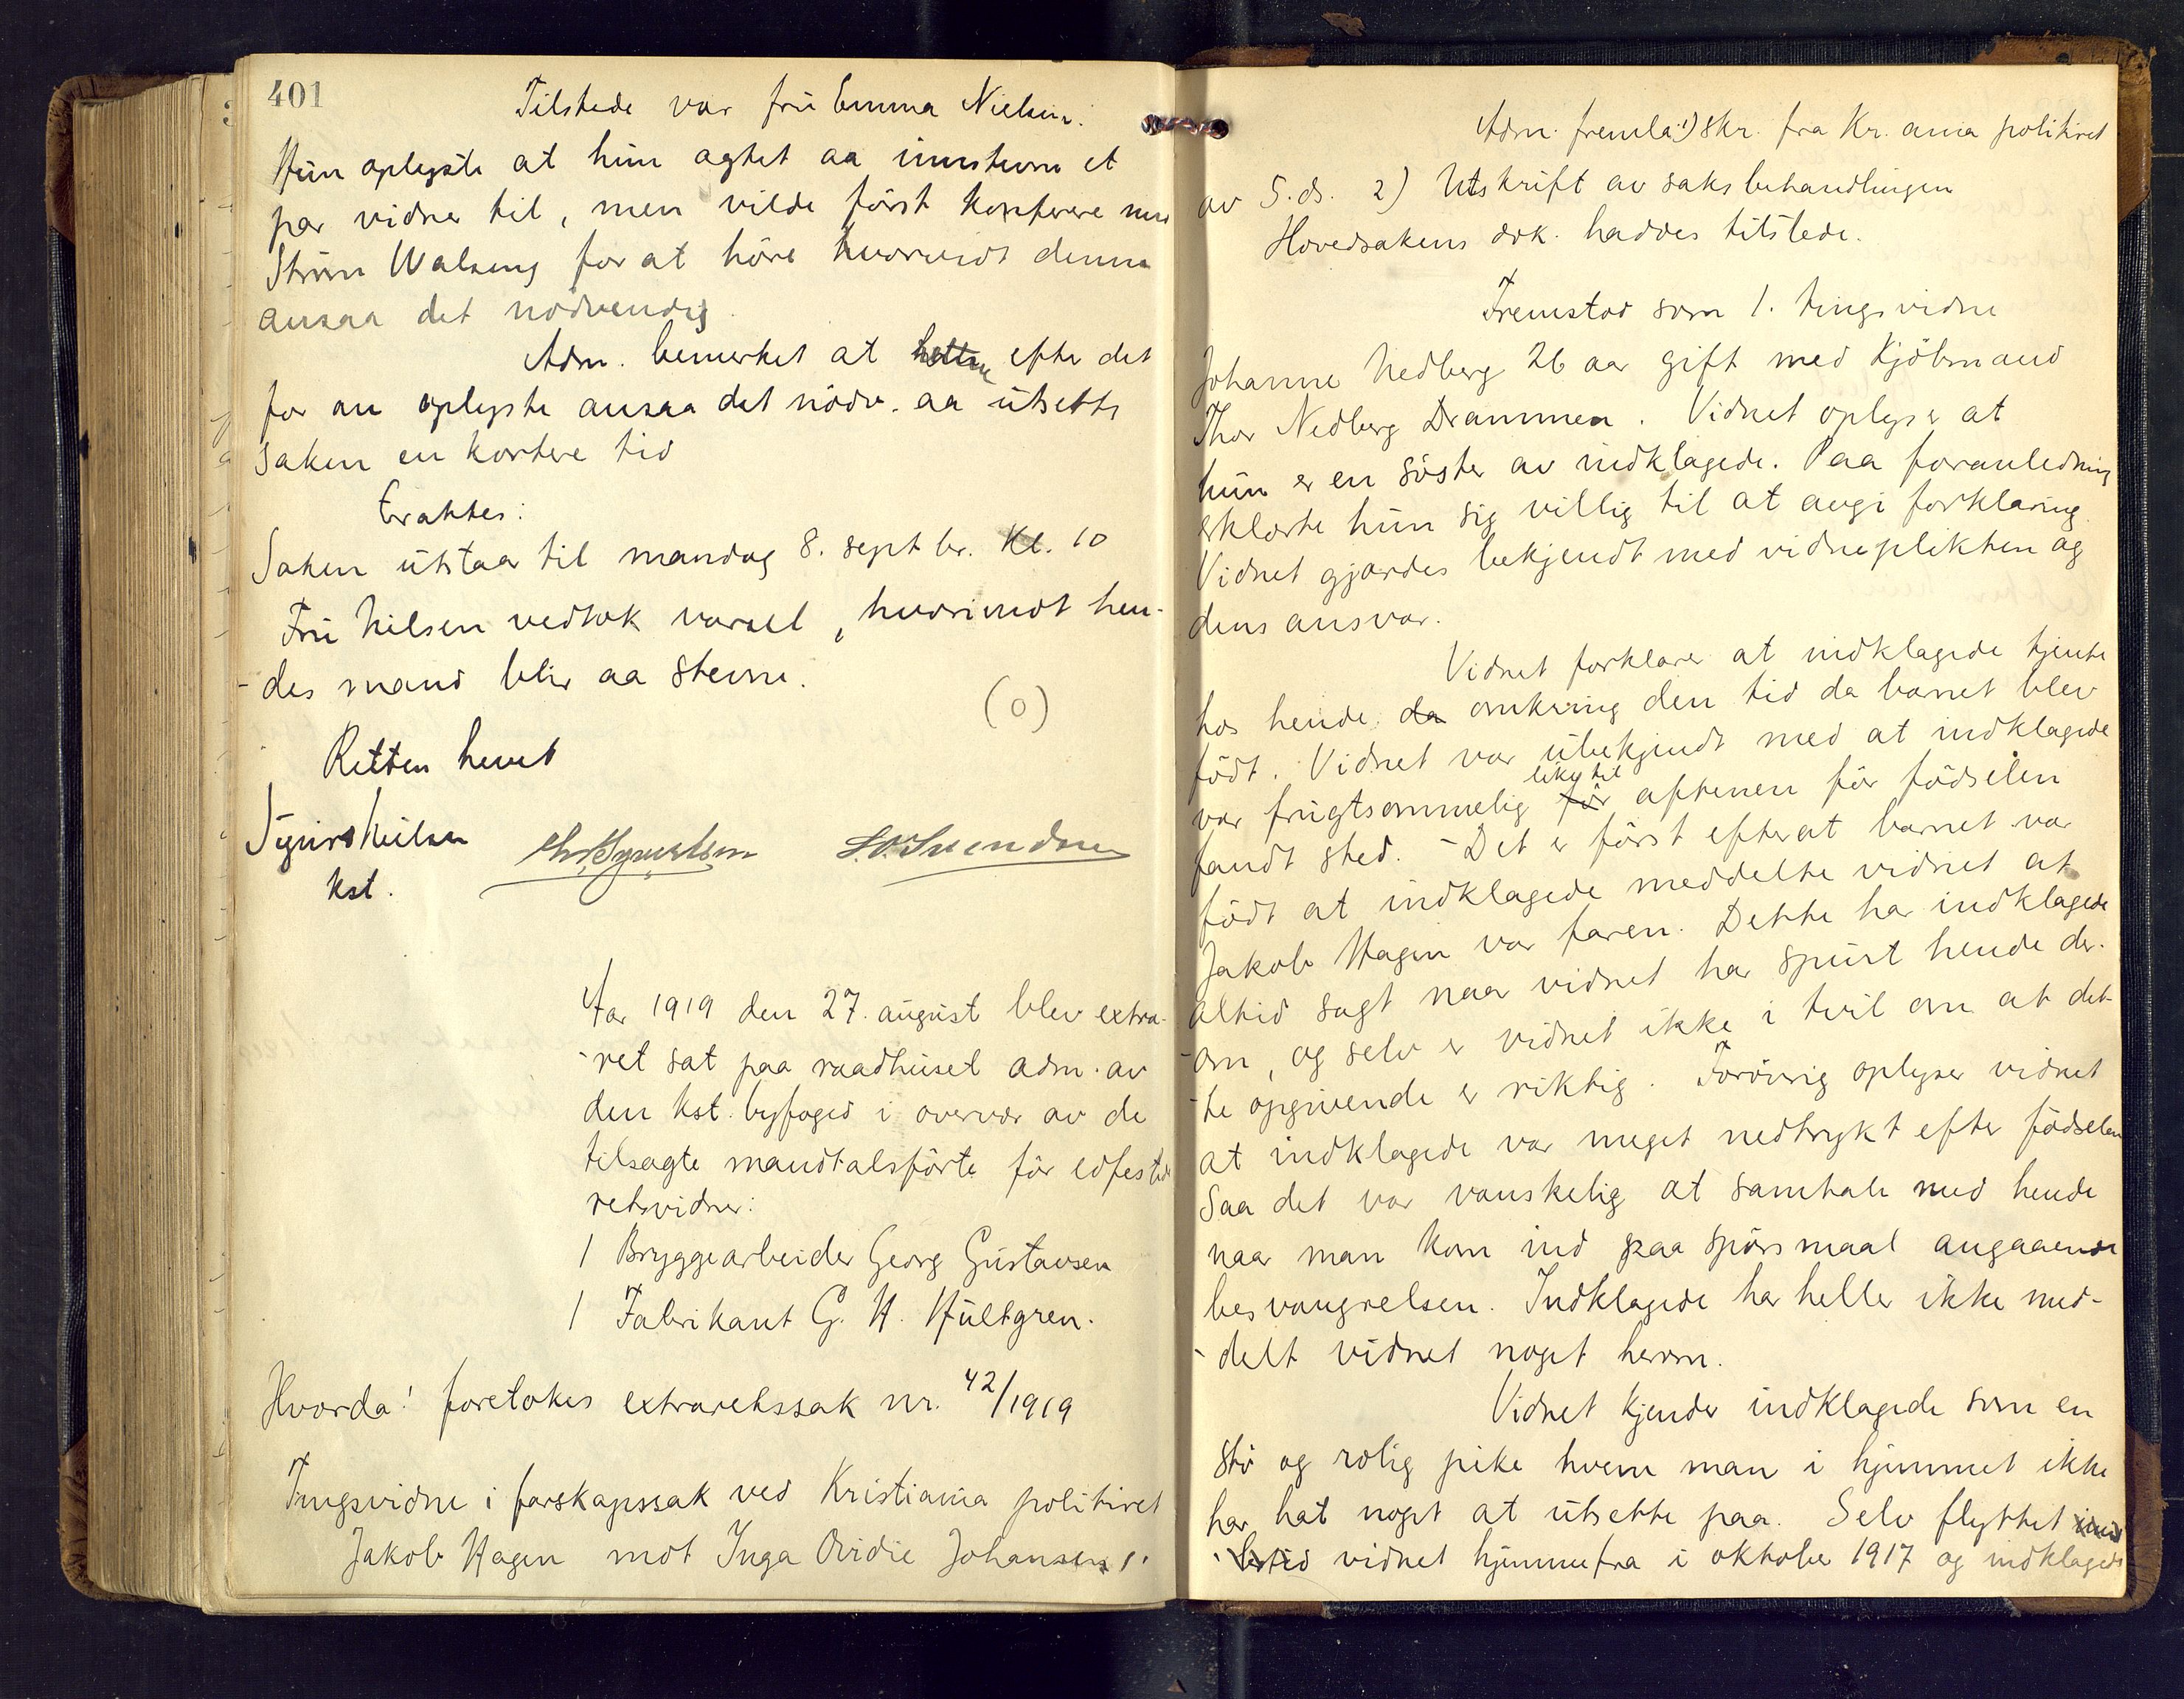 401
Tilstede var fru Emma Nielsen.
Hun oplyste at hun agtet aa innstevne et
par vidner til, men vilde først konferere med
Strøm Walseng for at høre hvorvidt denne
ansaa det nødvendig.
Adm. bemerket at efter det
for an oplyste ansaa det nødv. aa utsette
saken en kortere tid
Eraktes:
Saken utstaar til mandag 8. sept br. Kl. 10
Fru Nilsen vedtok varsel, hvorimot hen-
-des mand blir aa stevne.
(0)
Retten hevet
Sigurd Nielsen
kst.
Aar 1919 den 27. august blev extra-
-ret sat paa raadhuset adm. av
den kst. byfoged i overvær av de
tilsagte mandtalsførte før edfestede
retsvidner:
1 Bryggearbeider Georg Gustavsen
1 Fabrikant G. H. Hultgren.
Hvorda! foretokes extraretssak nr. 42/1919
Tingsvidne i farskapssak ved Kristiania politiret
Jakob Hagen mot Inga Ovidie Johansen.
Adm. fremla: 1) skr. fra Kr.ania politiret
av 5. ds. 2) Utskrift av saksbehandlingen
Hovedsakens dok. haddes tilstede.
Fremstod som 1. tingsvidne
Johanne Nedberg 26 aar gift med Kjøbmand
Thor Nedberg Drammen. Vidnet oplyser at
hun er en søster av indklagede. Paa foranledning
erklærte hun sig villig til at avgi forklaring.
Vidnet gjordes bekjendt med vidneplikten og
dens ansvar.
Vidnet forklarer at indklagede tjente
hos hende da omkring den tid da barnet blev
født. Vidnet var ubekjendt med at indklagede
like til
var frugtsommelig før aftenen før fødselen
fandt sted. - Det er først efterat barnet var
født at indklagede meddelte vidnet at
Jakob Hagen var faren. Dette har indklagede
altid sagt naar vidnet har spurt hende der-
-om, og selv er vidnet ikke i tvil om at det-
-te opgivende er riktig. Forøvrig oplyser vidnet
at indklagede var meget nedtrykt efter fødselen
saa det var vanskelig at samtale med hende
naar man kom ind paa spørsmaal angaaende
besvangrelsen. Indklagede har heller ikke med-
-delt vidnet noget herom.
Vidnet kjender indklagede som en
stø og rolig pike hvem man i hjemmet ikke
har hat noget at utsette paa. Selv flyttet
vidnet hjemmefra i oktober 1917 og indklagede